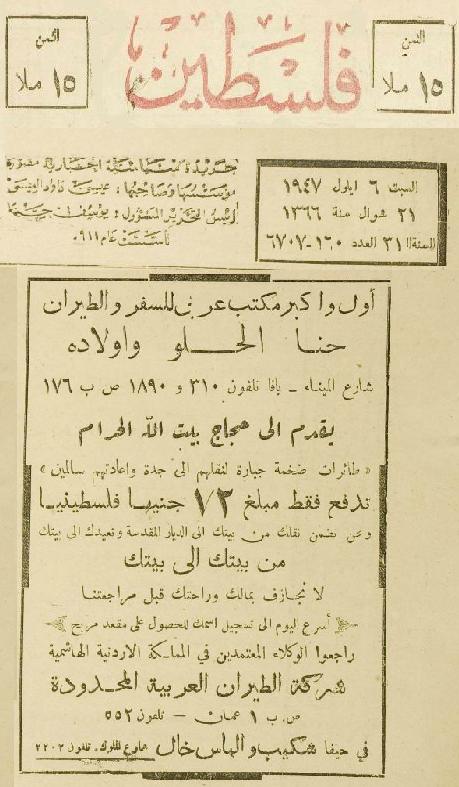 الثمن
١٥ ملا
فلسطين
الثمن
١٥ ملا
السبت ٦ ايلول ١٩٤٧
٢١ شوال سنة ١٣٦٦
السنة ٣١ العدد ١٦٠-٦٧٠٧
جريدة سياسية اخبارية مصورة
مؤسسها وصاحبها: عيسى داود العيسى
رئيس التحرير المسؤول: يوسف حنا
تأسست عام ٩١١
أول واكبر مكتب عربي للسفر والطيران
حنا الحلو واولاده
شارع الميناء - يافا تلفون ٣١٠ و ١٨٩٠ ص ب ١٧٦
يقدم الى حجاج بيت الله الحرام
« طائرات ضخمة جبارة لنقلهم الى جدة واعادتهم سالمين »
تدفع فقط مبلغ ٧٢ جنيها فلسطينيا
ونحن نضمن نقلك من بيتك الى الديار المقدسة ونعيدك الى بيتك
من بيتك الى بيتك
لا تجازف بمالك وراحتك قبل مراجعتنا
أسرع اليوم الى تسجيل اسمك للحصول على مقعد مريح
راجعوا الوكلاء المعتمدين في المملكة الاردنية الهاشمية
شركة الطيران العربية المحدودة
ص. ب ١ عمان - تلفون ٥٥٢
في حيفا شكيب والياس خال شارع الملوك. تلفون ٢٢٠٣